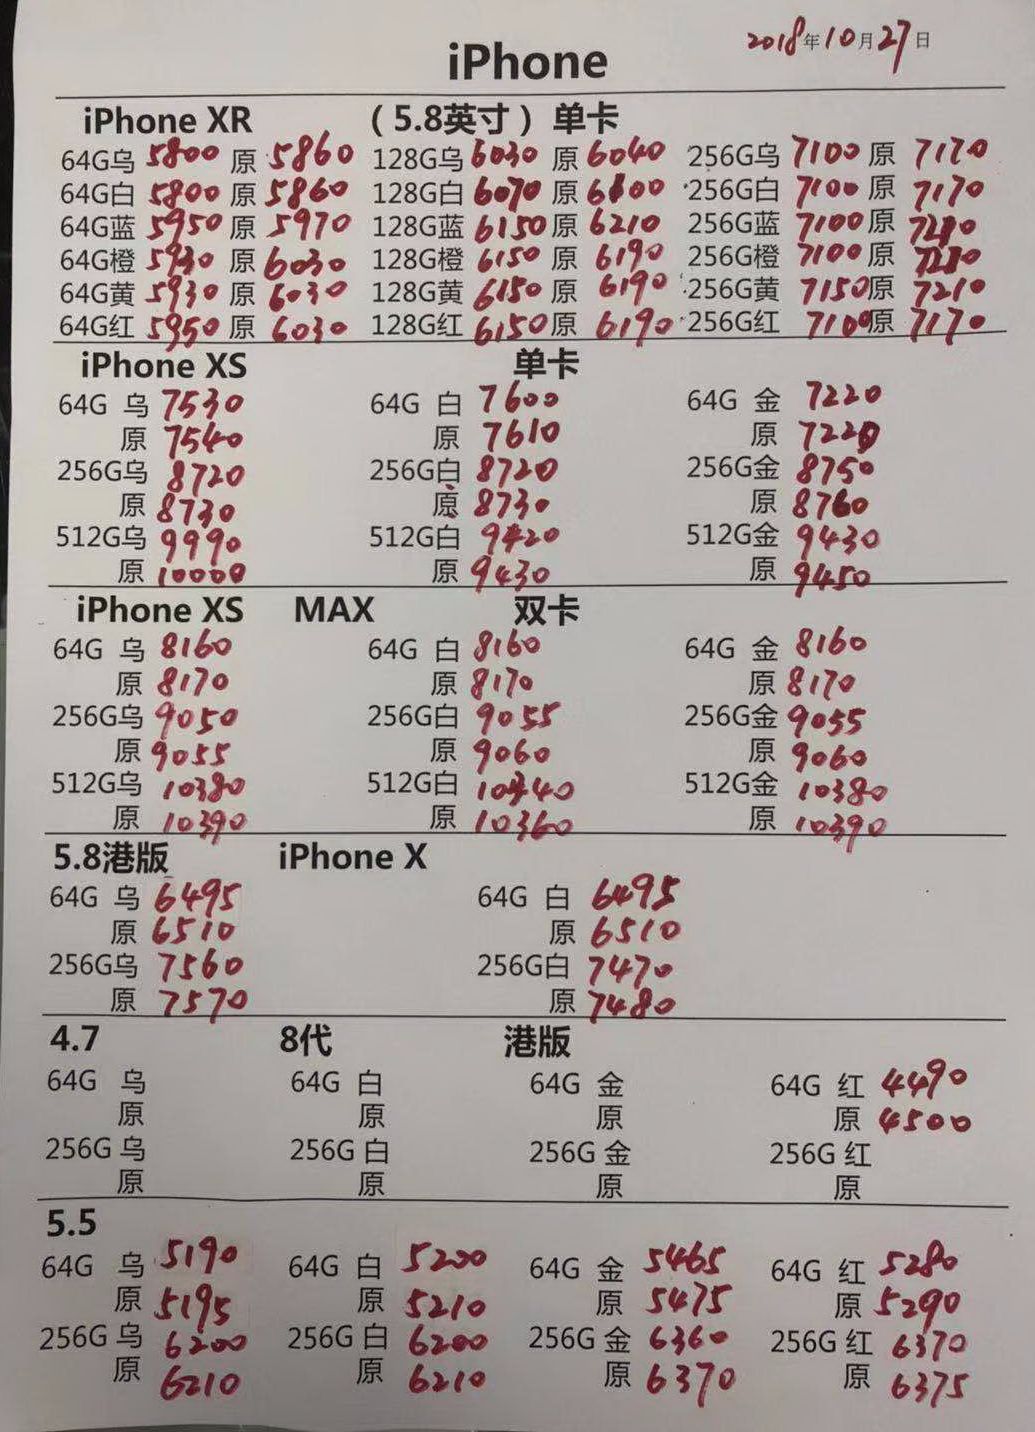 2018年10月27日
iPhone
iPhone XR （5.8英寸）单卡
64G乌 5800 原 5860 128G乌 6030 原 6040 256G乌 7100 原 7170
64G白 5800 原 5860 128G白 6070 原 6100 256G白 7100 原 7170
64G蓝 5950 原 5970 128G蓝 6150 原 6210 256G蓝 7100 原
64G橙 5930 原 6030 128G橙 6150 原 6190 256G橙 7100 原
64G黄 5930 原 6030 128G黄 6150 原 6190 256G黄 7150 原 7210
64G红 5950 原 6030 128G红 6150 原 6190 256G红 7100 原 7170
iPhone XS 单卡
64G 乌 7530 64G 白 7600 64G 金 7220
原 7540 原 7610 原 7220
256G乌 8720 256G白 8720 256G金 8750
原 8730 原 8730 原 8760
512G乌 9990 512G白 9420 512G金 9430
原 10000 原 9430 原 9450
iPhone XS MAX 双卡
64G 乌 8160 64G 白 8160 64G 金 8160
原 8170 原 8170 原 8170
256G乌 9050 256G白 9055 256G金 9055
原 9055 原 9060 原 9060
512G乌 10380 512G白 10340 512G金 10380
原 10390 原 10360 原 10390
5.8港版 iPhone X
64G 乌 6495 64G 白 6495
原 6510 原 6510
256G乌 7560 256G白 7470
原 7570 原 7480
4.7 8代 港版
64G 乌 64G 白 64G 金 64G 红 4490
原 原 原 原 4500
256G 乌 256G 白 256G 金 256G 红
原 原 原 原
5.5
64G 乌 5190 64G 白 5200 64G 金 5465 64G 红 5280
原 5195 原 5210 原 5475 原 5290
256G 乌 6200 256G 白 6200 256G 金 6360 256G 红 6370
原 6210 原 6210 原 6370 原 6375